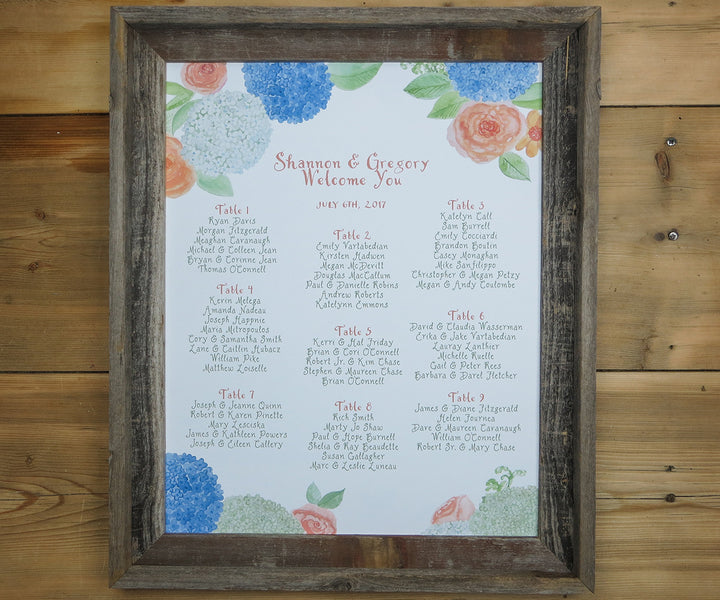 Shannon & Gregory
Welcome You
JULY 6TH, 2017
Table 1
Ryan Davis
Morgan Fitzgerald
Meaghan Cavanaugh
Michael & Colleen Jean
Bryan & Corinne Jean
Thomas O'Connell
Table 2
Emily Vartabedian
Kirsten Hadwen
Megan McDevitt
Douglas MacCallum
Paul & Danielle Robins
Andrew Roberts
Katelynn Emmons
Table 3
Katelyn Call
Sam Burrell
Emily Cocciardi
Brandon Boutin
Casey Monaghan
Mike Sanfilippo
Christopher & Megan Petzy
Megan & Andy Coulombe
Table 4
Kerin Melega
Amanda Nadeau
Joseph Happnie
Maria Mitropoulos
Cory & Samantha Smith
Lane & Caitlin Hubacz
William Pike
Matthew Loiselle
Table 5
Kerri & Hal Friday
Brian & Cori O'Connell
Robert Jr. & Kim Chase
Stephen & Maureen Chase
Brian O'Connell
Table 6
David & Claudia Wasserman
Erika & Jake Vartabedian
Lauray Lanthier
Michelle Ruelle
Gail & Peter Rees
Barbara & Darel Fletcher
Table 7
Joseph & Jeanne Quinn
Robert & Karen Pinette
Mary Lesciska
James & Kathleen Powers
Joseph & Eileen Callery
Table 8
Rick Smith
Marty Jo Shaw
Paul & Hope Burnell
Shelia & Ray Beaudette
Susan Gallagher
Marc & Leslie Luneau
Table 9
James & Diane Fitzgerald
Helen Journea
Dare & Maureen Cavanaugh
William O'Connell
Robert Sr. & Mary Chase